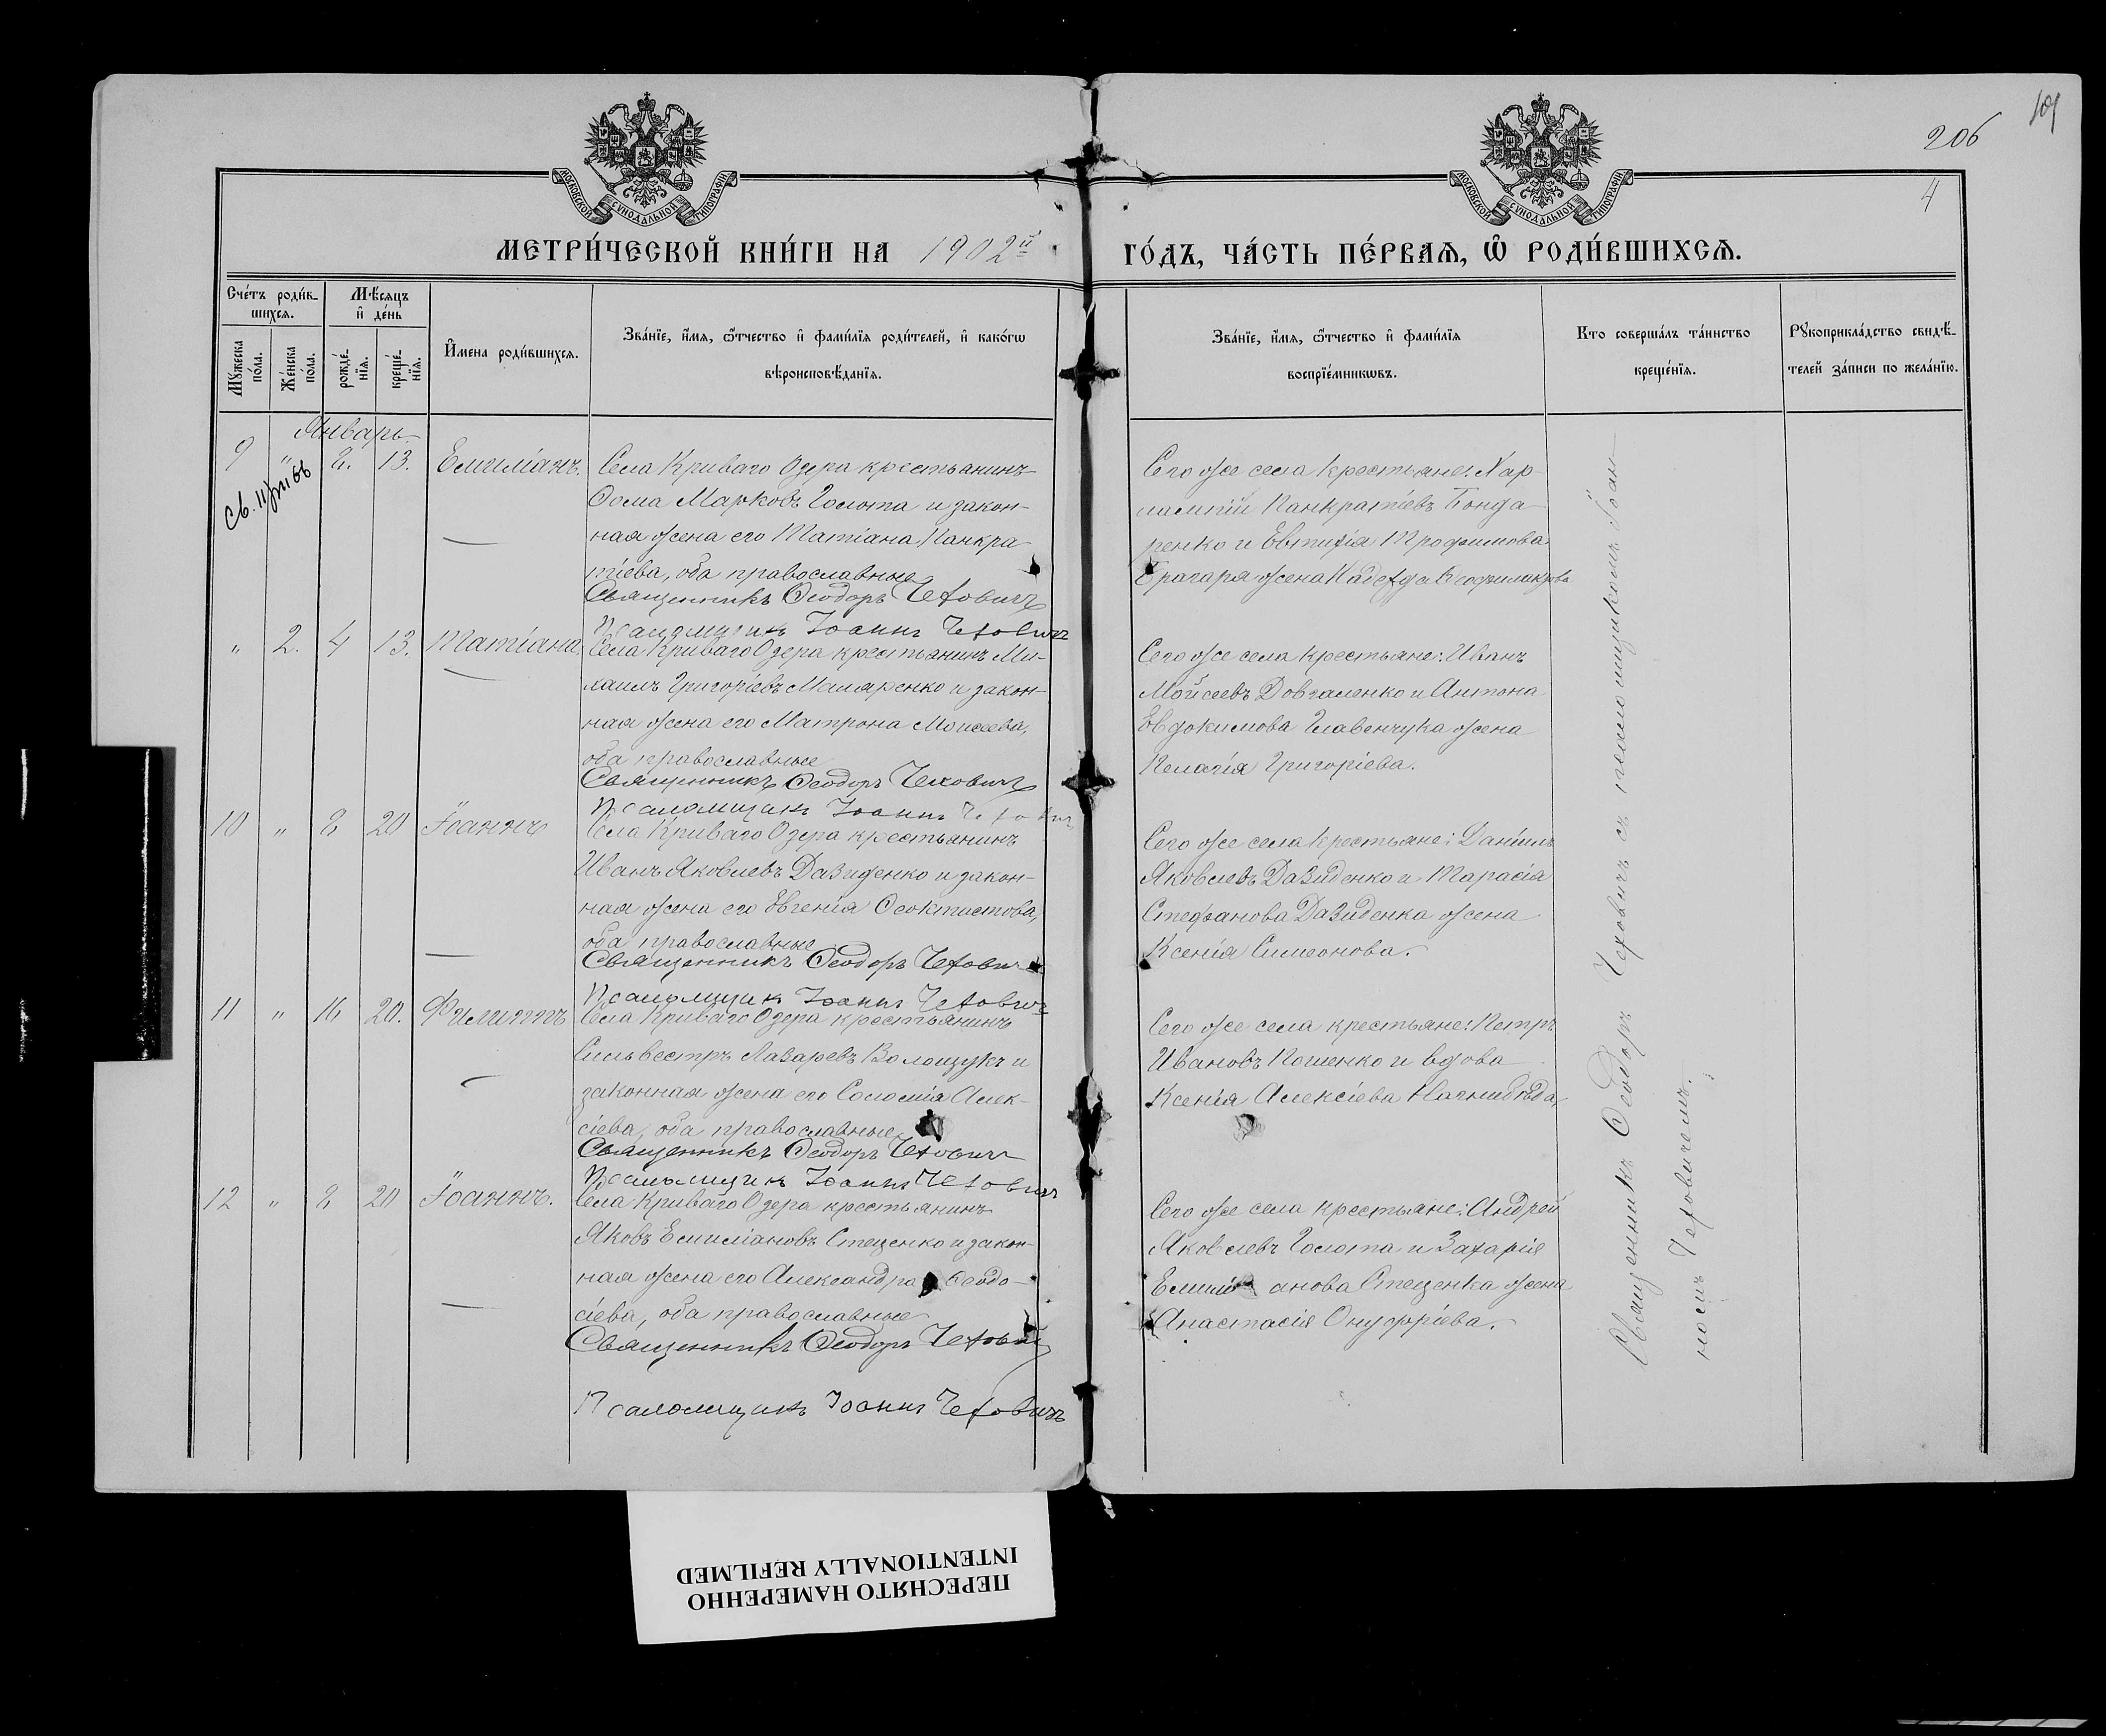 109
206
4
МОСКОВСКОЙ СѴНОДАЛЬНОЙ ТИПОГРАФІИ
МОСКОВСКОЙ СѴНОДАЛЬНОЙ ТИПОГРАФІИ
МЕТРИ́ЧЕСКОЙ КНИ́ГИ НА 1902й ГО́ДЪ, ЧА́СТЬ ПЕ́РВАѦ, Ѽ РОДИ́ВШИХСѦ.
Сче́тъ роди́в-
шихсѧ.
Мѣ́сѧцъ
и҆ де́нь
Мꙋ́жеска
по́ла.
Же́нска
по́ла.
рожде́-
нїѧ.
креще́-
нїѧ.
И҆мена роди́вшихсѧ.
Зва́нїе, и҆́мѧ, ѻ҆́тчество и҆ фами́лїѧ роди́телей, и҆ како́гѡ
вѣроисповѣ́данїѧ.
Зва́нїе, и҆́мѧ, ѻ҆́тчество и҆ фами́лїѧ
воспрїе́мникѡвъ.
Кто соверша́лъ та́инство
креще́нїѧ.
Рꙋкоприкла́дство свидѣ́-
телей за́писи по жела́нїю.
Январь
9 " 2. 13. Емиліанъ.
Села Криваго Озера крестьянинъ
Ѳома Марковъ Голота и закон-
ная жена его Татіана Панкра-
тіева, оба православные
Священникъ Ѳеодоръ Чеховичъ
Псаломщикъ Іоаннъ Чеховичъ
Сего же села крестьяне: Хар-
лампій Панкратіевъ Бонда-
ренко и Евтихія Трофимова
жена Надежда
" 2. 4 13. Татіана.
Села Криваго Озера крестьянинъ Ми-
хаилъ Григоріевъ Маляренко и закон-
ная жена его Матрона Моисеева,
оба православные
Священникъ Ѳеодоръ Чеховичъ
Псаломщикъ Іоаннъ Чеховичъ
Сего же села крестьяне: Иванъ
Мойсеевъ Довгаленко и Антона
Евдокимова Главенчука жена
Пелагія Григоріева.
10 " 8 20 Іоаннъ
Села Криваго Озера крестьянинъ
Иванъ Яковлевъ Давиденко и закон-
ная жена его Евгенія Ѳеоктистова,
оба православные
Священникъ Ѳеодоръ Чеховичъ
Псаломщикъ Іоаннъ Чеховичъ
Сего же села крестьяне: Даніилъ
Яковлевъ Давиденко и Тарасія
Стефанова Давиденка жена
Ксенія Симеонова.
11 " 16 20. Филиппъ
Села Криваго Озера крестьянинъ
Сильвестръ Лазаревъ Волощукъ и
законная жена его Соломія Алек-
сіева, оба православные
Священникъ Ѳеодоръ Чеховичъ
Псаломщикъ Іоаннъ Чеховичъ
Сего же села крестьяне: Петръ
Ивановъ и вдова
Ксенія Алексіева
12 " 8 20 Іоаннъ.
Села Криваго Озера крестьянинъ
Яковъ Емиліановъ Стеценко и закон-
ная жена его Александра Ѳеодо-
сіева, оба православные
Священникъ Ѳеодоръ Чеховичъ
Псаломщикъ Іоаннъ Чеховичъ
Сего же села крестьяне: Андрей
Яковлевъ Голота и Захарія
Емиліанова Стеценка жена
Анастасія Онуфріева.
Священникъ Ѳеодоръ Чеховичъ съ псаломщикомъ Іоан-
номъ Чеховичемъ.
ПЕРЕСНЯТО НАМЕРЕННО
INTENTIONALLY REFILMED